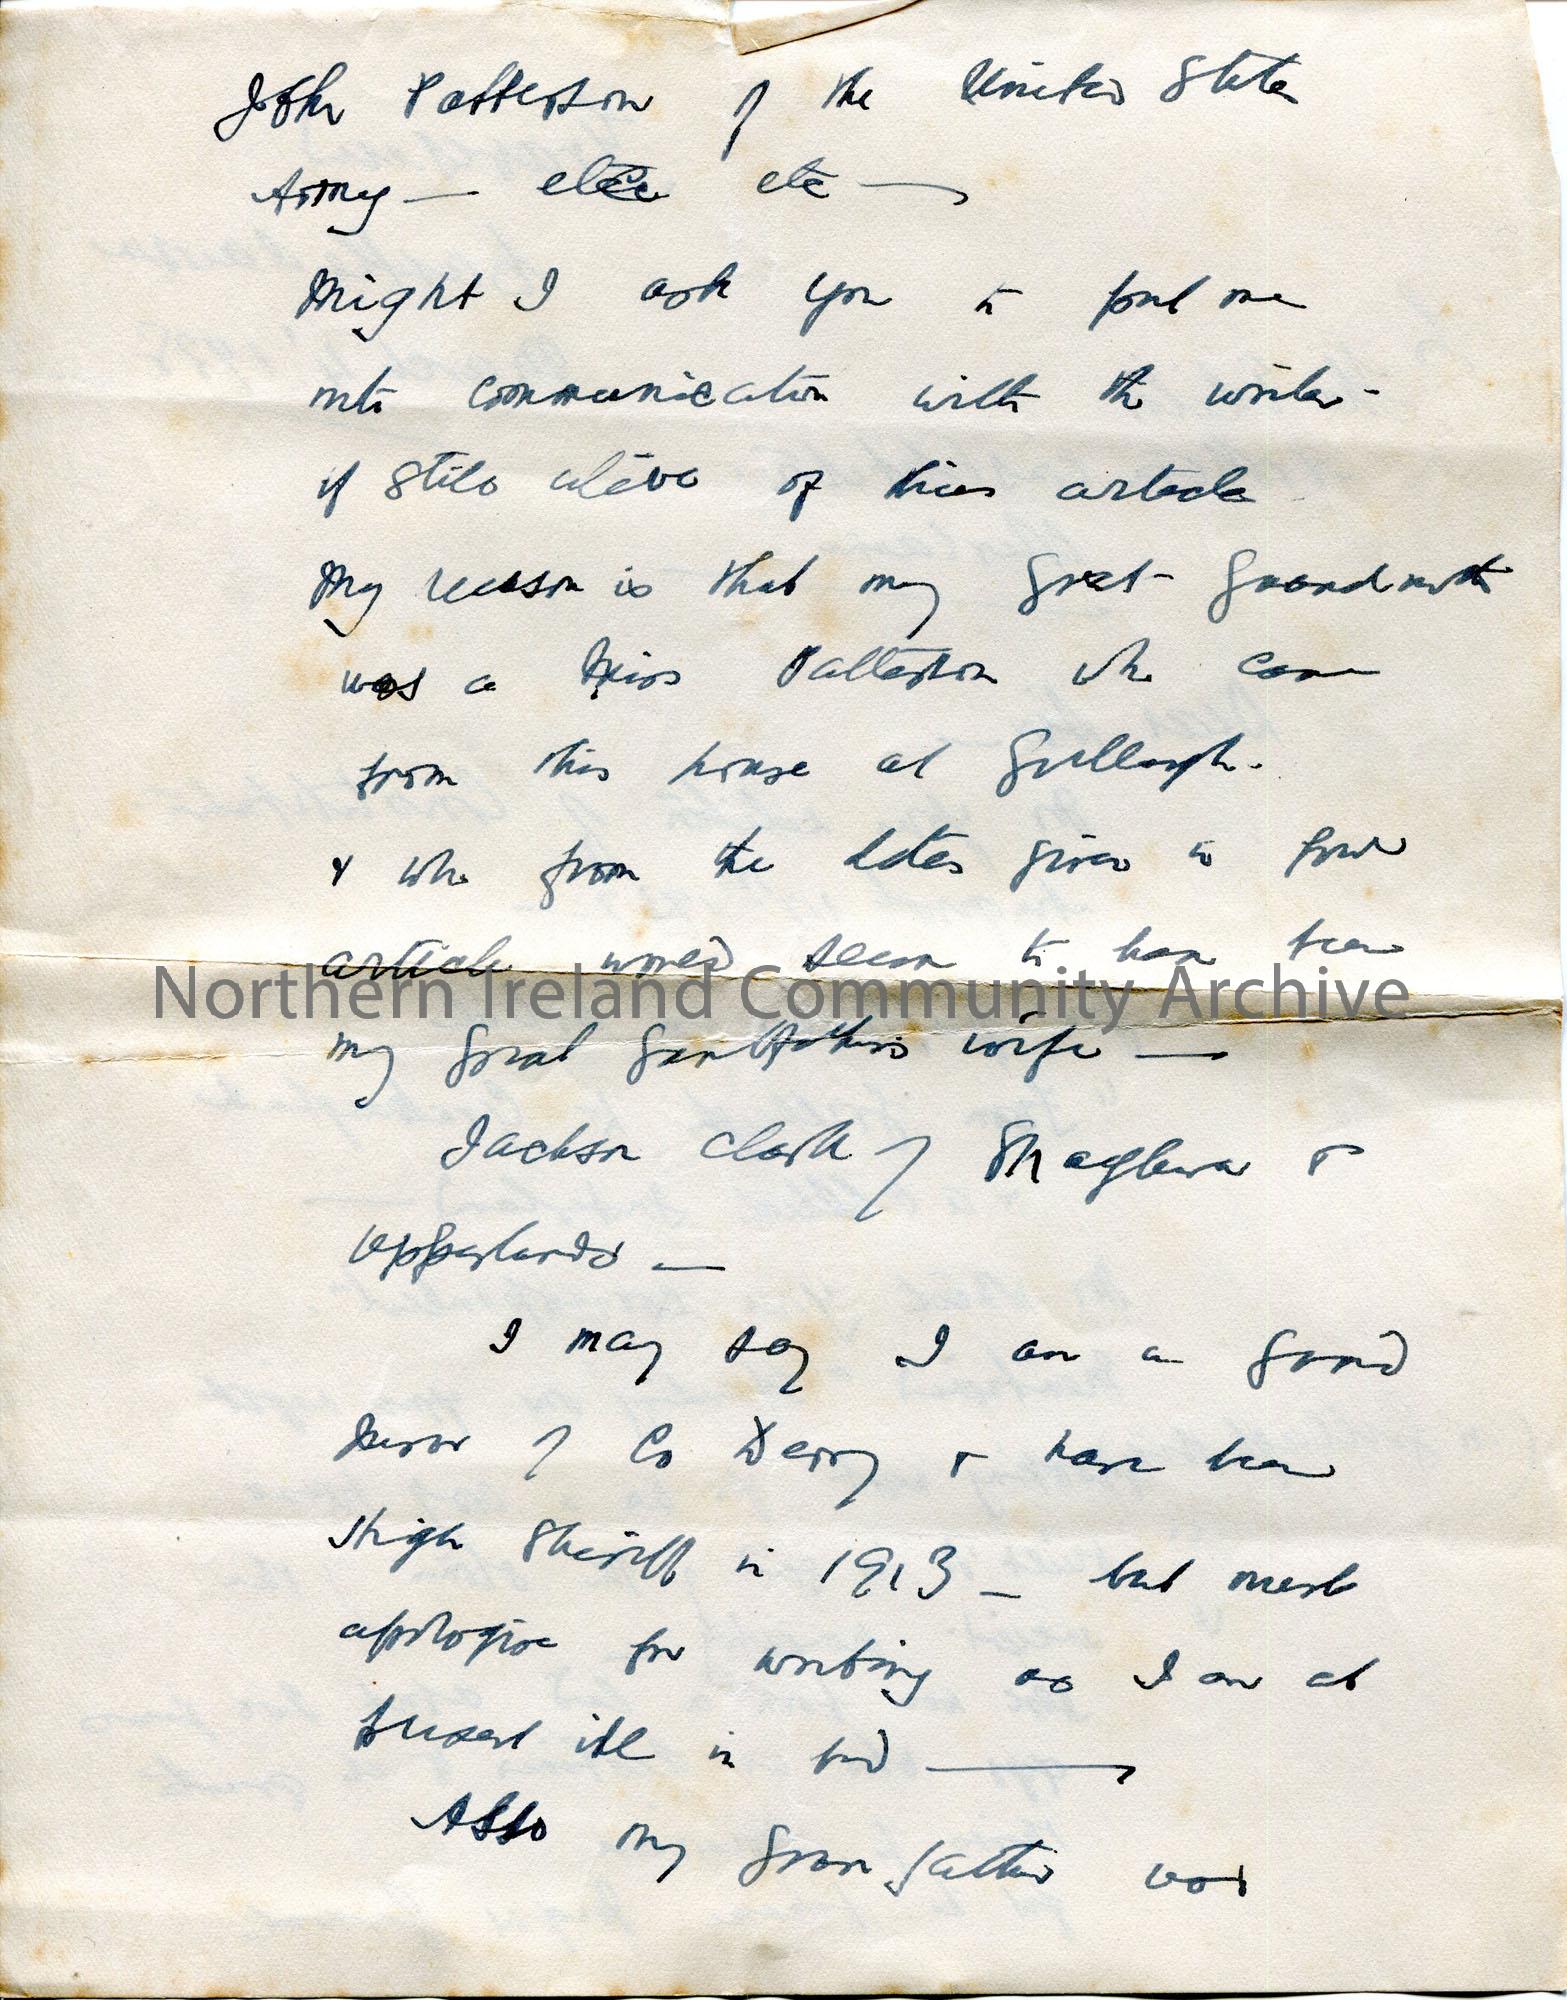 John Patterson of the United States
Army — etc etc —
Might I ask you to put me
into communication with the writer -
if still alive of this article
My reason is that my great - Grandmoth
was a Miss Patterson who came
from this house at Gullaugh.
& who from the dates given in your
article would seem to have been
Northern Ireland Community Archive
my Great Grandfathers wife —
Jackson Clark of Maghera &
Upperlands —
I may say I am a Grand
Juror of Co Derry & have been
High Sheriff in 1913 — but must
apologise for writing as I am at
present ill in bed —
Also my Grandfather was